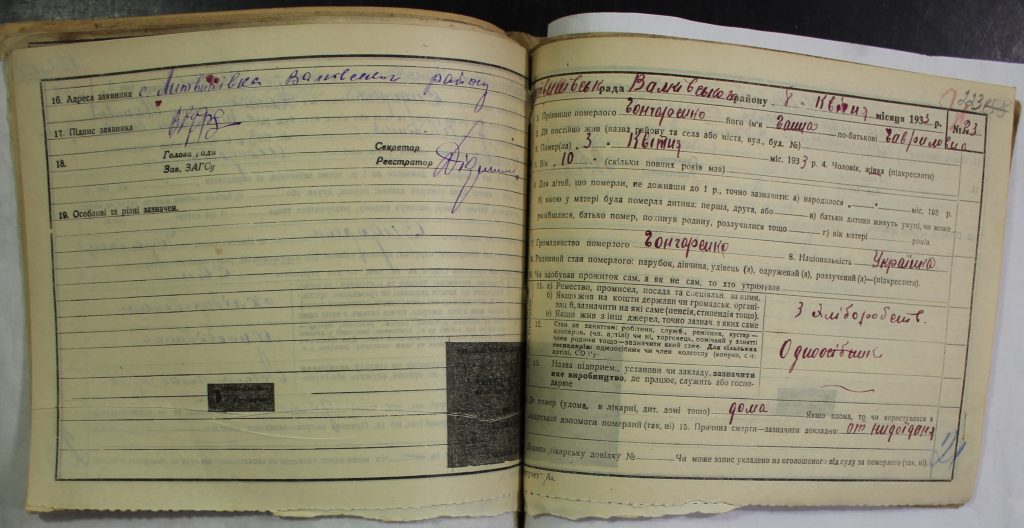 16. Адреса заявника с. Литвинівка Валківського району
17. Підпис заявника
18. Голова ради
Зав. ЗАГСу
Секретар
Реєстратор
19. Особливі та різні зазначен.
рада Валківського району „ 8 " Квітня місяця 1933 р. № 23
1. Прізвище померлого Гончаренко його ім'я по-батькові Гавриловна
2. Де постійно жив (назва району та села або міста, вул., буд. №)
3. Помер(ла) „ 3 " Квітня міс. 1933 р. 4. Чоловік, жінка (підкреслити)
5. Вік 10 (скільки повних років мав)
6. Для дітей, що померли, не доживши до 1 р., точно зазначити: а) народилося „ " міс. 193 р.
б) якою у матері була померла дитина: перша, друга, або в) батьки дитини живуть укупі, чи може
розійшлися, батько помер, покинув родину, розлучилися тощо г) вік матері років.
7. Громадянство померлого Гончаренко 8. Національність Українка
9. Родинний стан померлого: парубок, дівчина, удівець (а), одружений (а), розлучений (а)—(підкреслити).
10. Чи здобував прожиток сам, а як не сам, то хто утримував
11. а) Ремество, промисел, посада та спеціяльн. за ними.
б) Якщо жив на кошти держави чи громадськ. органі-
зації, зазначити на які саме (пенсія, стипендія тощо).
в) Якщо жив з інш джерел, точно зазнач. з яких саме
З Хліборобств.
12. Стан за заняттям: робітник, служб., ремісник, кустар—
кооперов. (чл. артілі) чи ні, торговець, помічний у занятті
член родини тощо—зазначити який саме. Для сільських
господарів: одноосібник чи член колгоспу (комуни, с.-г.
артілі, СОЗ'у)
Одноосібник
13. Назва підприєм., установи чи закладу, зазначити
яке виробництво, де працює, служить або госпо-
дарює
Де помер (удома, в лікарні, дит. домі тощо) дома Якщо вдома, то чи користувався з
лікарської допомоги померлий (так, ні) 15. Причина смерти—зазначити докладно: от недоїдання
лікарську довідку № Чи може запис укладено на оголошеного від суду за померлого (так, ні)